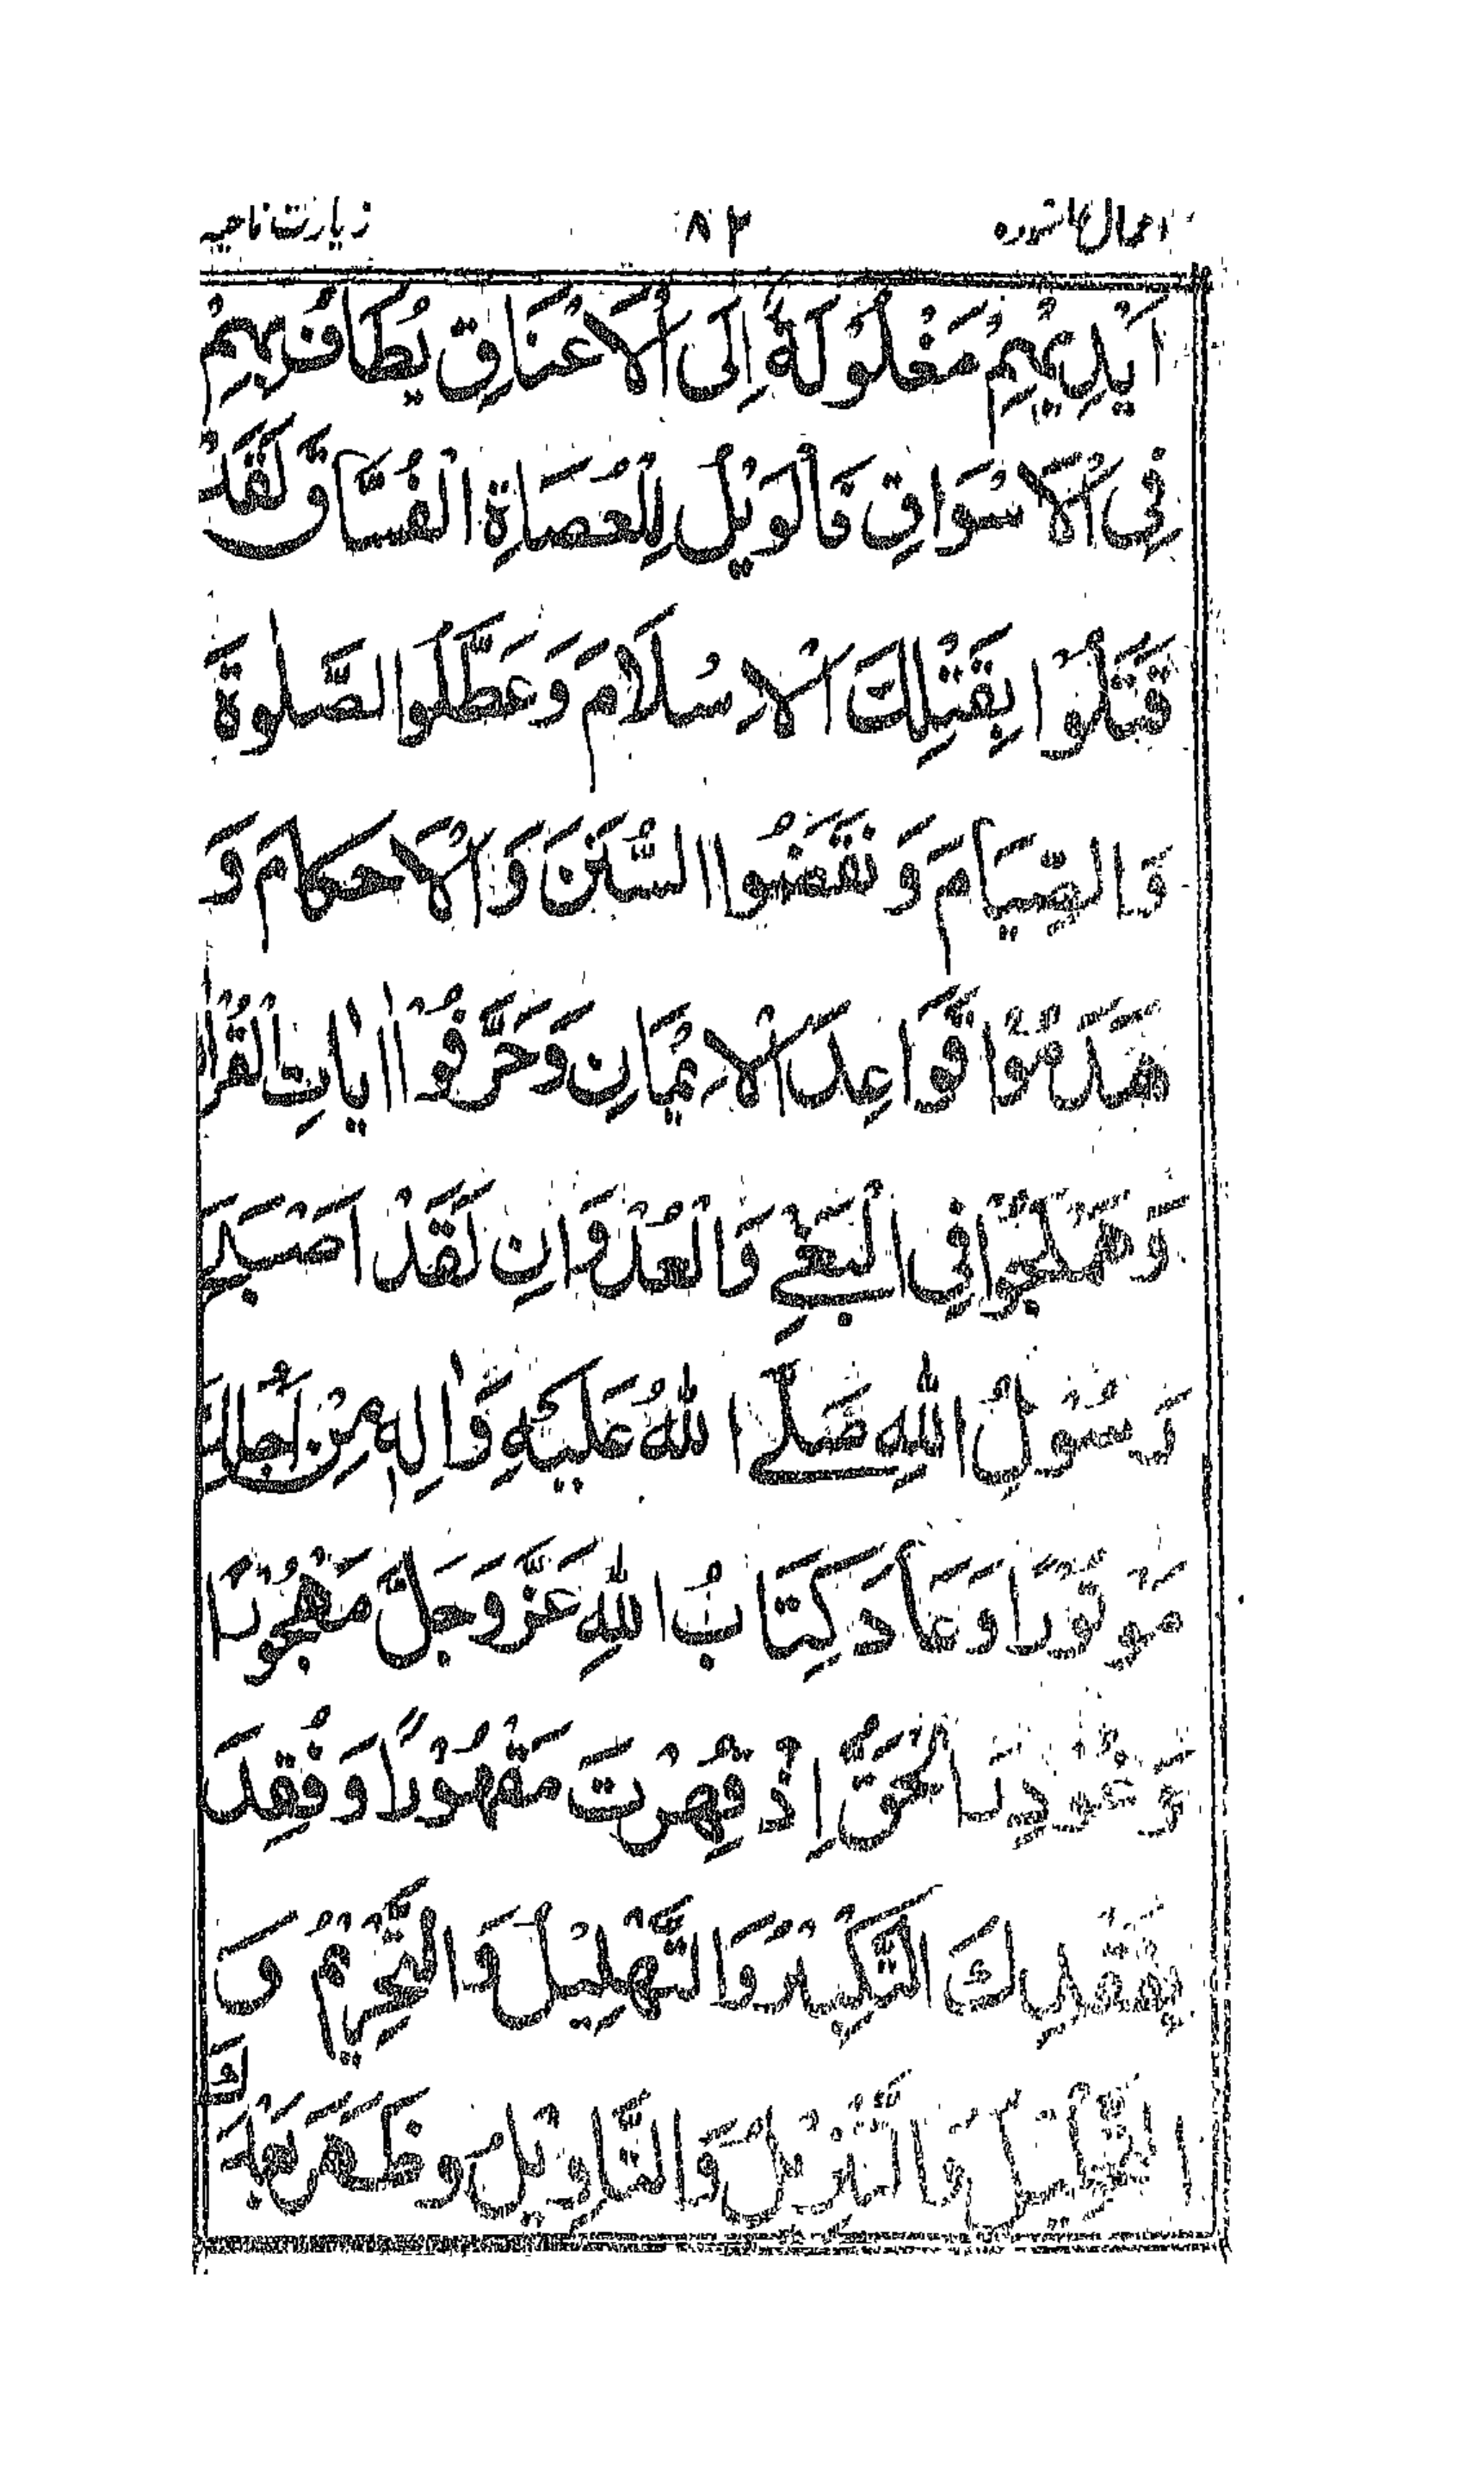 اعمال عاشوره ٨٢ زيارت ناحيه
اَيْدِيْهِمْ مَغْلُوْلَةٌ اِلَى الْاَعْنَاقِ يُطَافُ بِهِمْ
فِى الْاَسْوَاقِ فَالْوَيْلُ لِلْعُصَاةِ الْفُسَّاقِ لَقَدْ
قَتَلُوْا بِقَتْلِكَ الْاِسْلَامَ وَ عَطَّلُوا الصَّلٰوةَ
وَالصِّيَامَ وَ نَقَضُوا السُّنَنَ وَ الْاَحْكَامَ وَ
هَدَمُوْا قَوَاعِدَ الْاِيْمَانِ وَ حَرَّفُوْا اٰيَاتِ الْقُرْاٰنِ
وَ هَمْلَجُوْا فِى الْبَغْىِ وَ الْعُدْوَانِ لَقَدْ اَصْبَحَ
رَسُوْلُ اللهِ صَلَّى اللهُ عَلَيْهِ وَ اٰلِهٖ مِنْ اَجْلِكَ
مَوْتُوْرًا وَ عَادَ كِتَابُ اللهِ عَزَّ وَجَلَّ مَهْجُوْرًا
وَ غُوْدِرَ الْحَقُّ اِذْ قُهِرْتَ مَقْهُوْرًا وَ فُقِدَ
بِفَقْدِكَ التَّكْبِيْرُ وَالتَّهْلِيْلُ وَ التَّحْرِيْمُ وَ
التَّحْلِيْلُ وَ التَّنْزِيْلُ وَ التَّاوِيْلُ وَ ظَهَرَ بَعْدَكَ